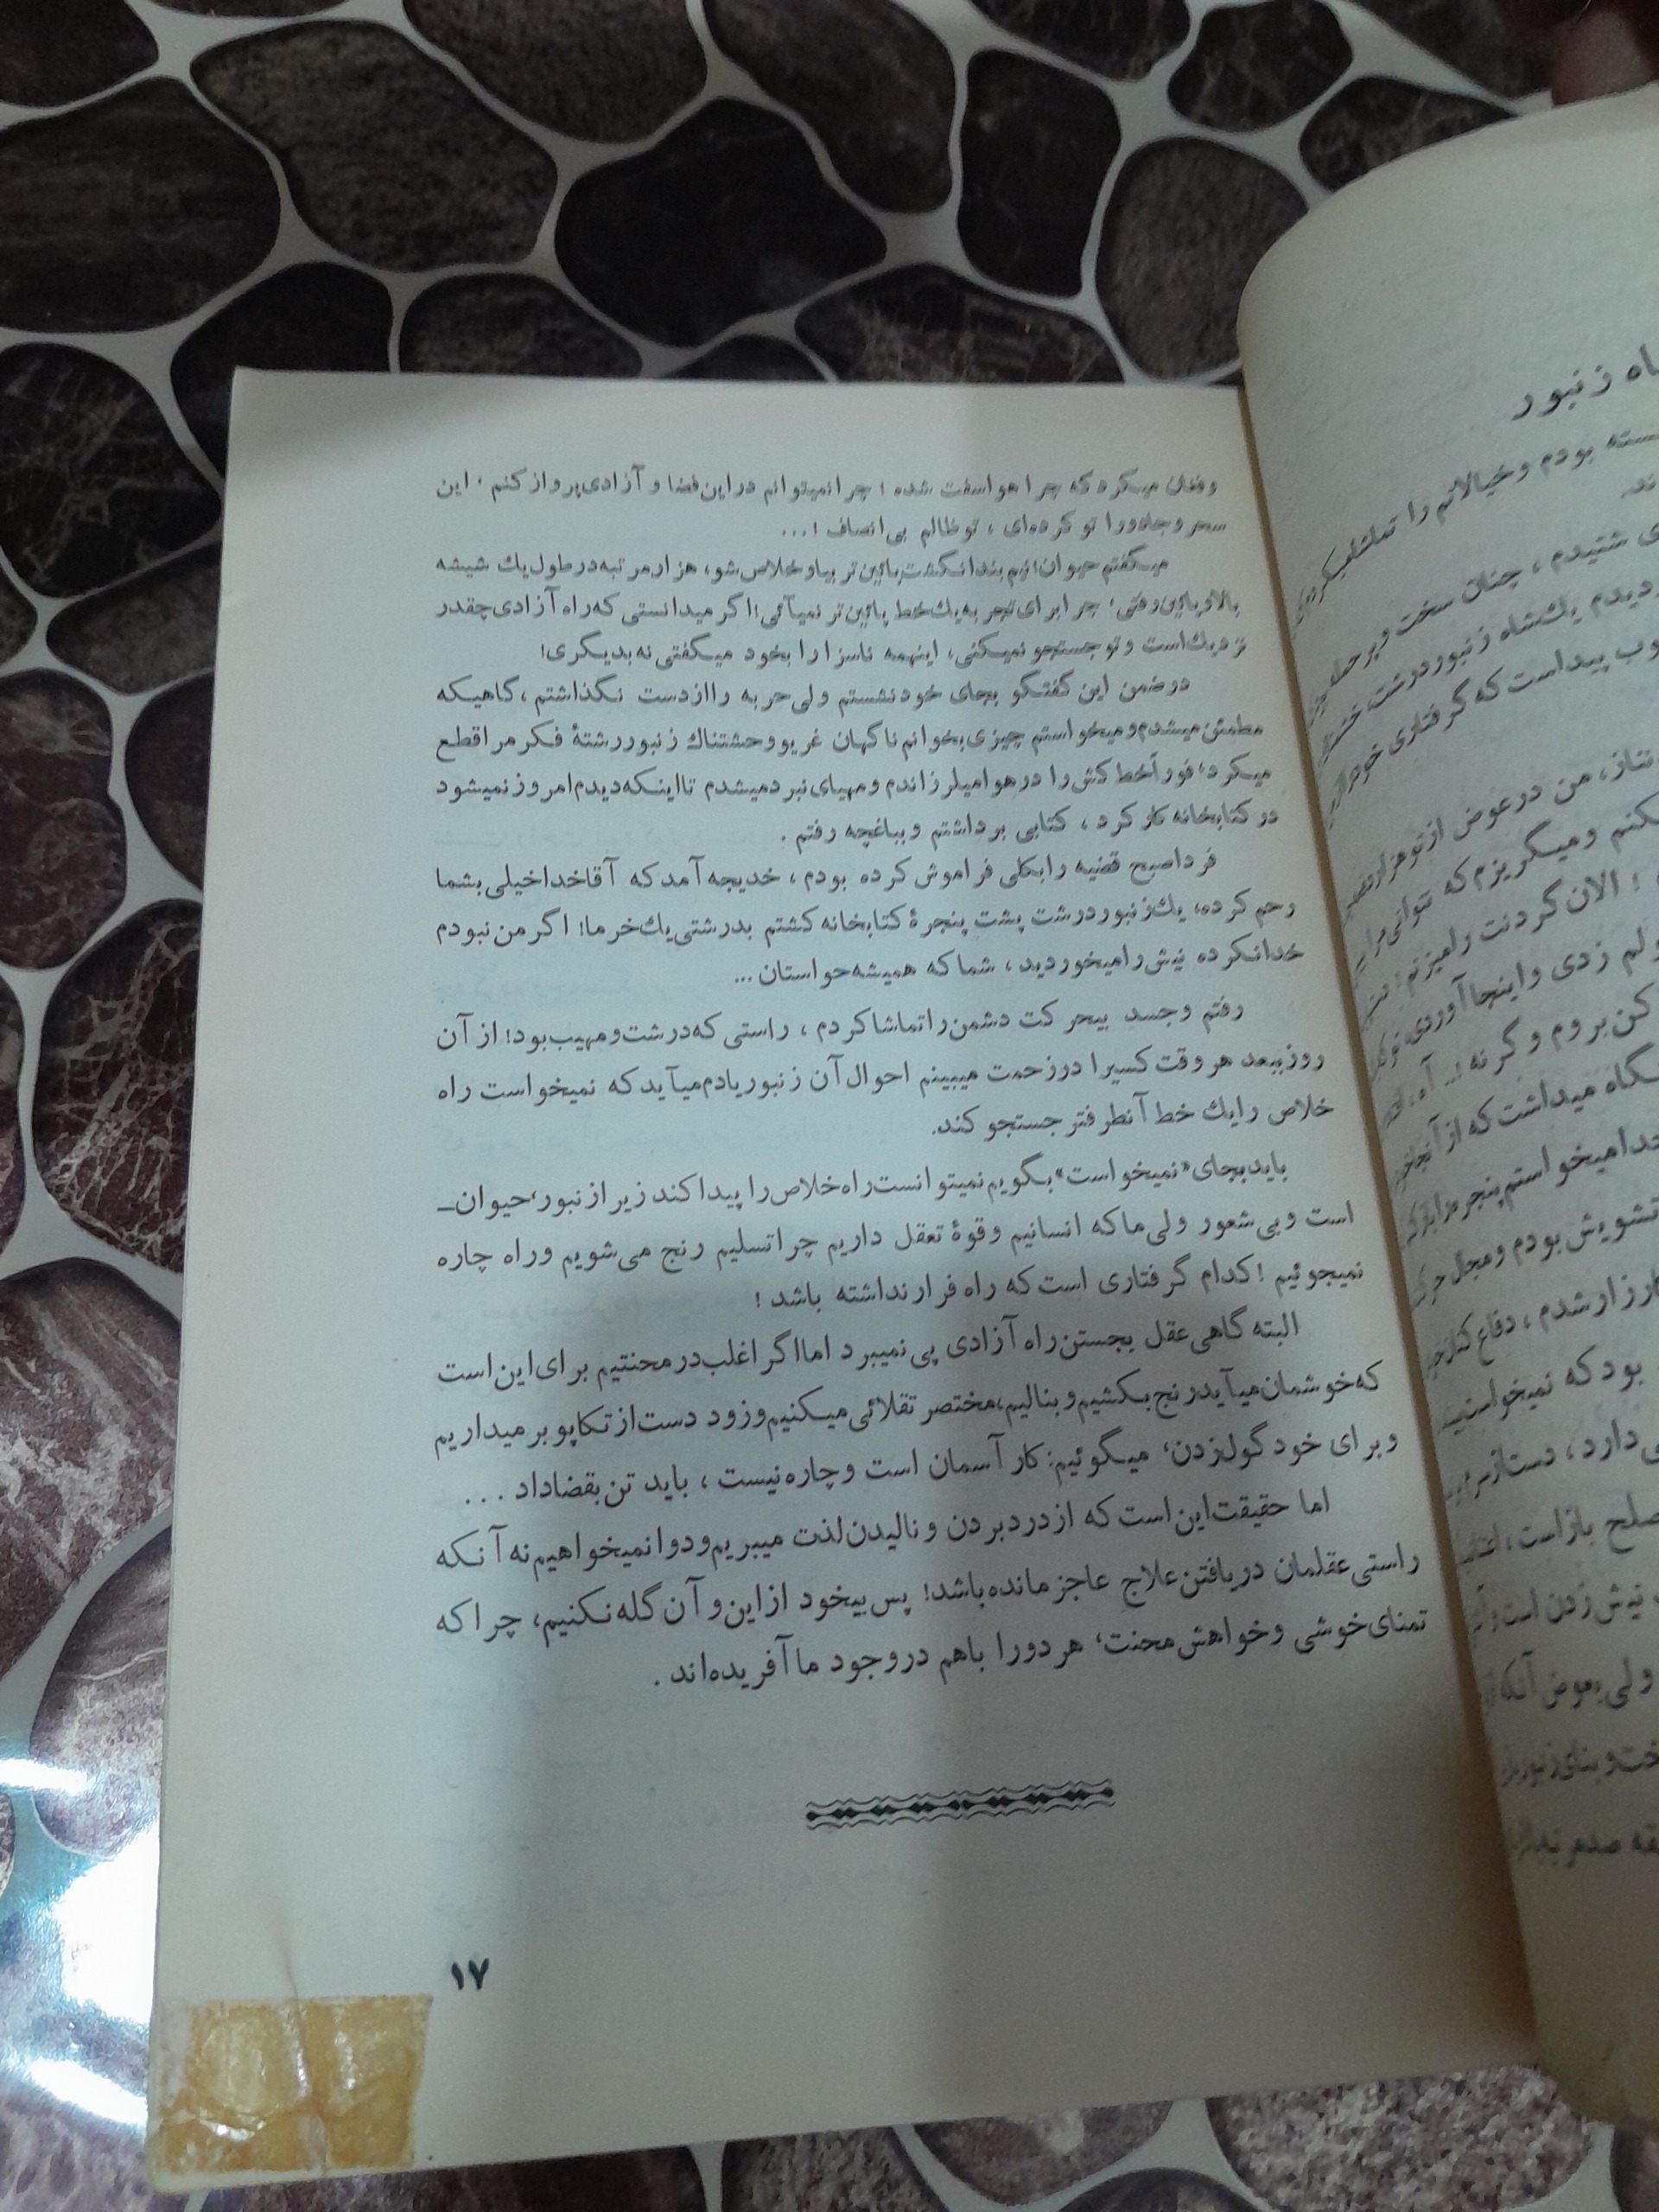 وفغان میکرد که چرا هوا سفت شده ؛ چرا نمیتوانم در این فضا و آزادی پرواز کنم ، این
سحر و جادو را تو کرده‌ای ، تو ظالم بی انصاف !...
میگفتم حیوان! نیم بند انگشت پائین‌تر بیا و خلاص شو، هزار مرتبه در طول یك شیشه
بالا و پائین رفتی، چرا برای تجربه یك خط پائین‌تر نمیآئی! اگر میدانستی که راه آزادی چقدر
نزدیك است و تو جستجو نمیکنی، اینهمه ناسزا را بخود میگفتی نه بدیگری!
در ضمن این گفتگو بجای خود نشستم ولی حربه را از دست نگذاشتم ، گاهیکه
مطمئن میشدم و میخواستم چیزی بخوانم ناگهان غریو وحشتناك زنبور رشتهٔ فکر مرا قطع
میکرد، فوراً خط کش را در هوا میلرزاندم و مهیای نبرد میشدم تا اینکه دیدم امروز نمیشود
در کتابخانه کار کرد ، کتابی برداشتم و بباغچه رفتم .
فردا صبح قضیه را بکلی فراموش کرده بودم ، خدیجه آمد که آقا خدا خیلی بشما
رحم کرده، یك زنبور درشت پشت پنجرهٔ کتابخانه کشتم بدرشتی یك خرما! اگر من نبودم
خدا نکرده نیش را میخوردید ، شما که همیشه حواستان ...
رفتم و جسد بیحرکت دشمن را تماشا کردم ، راستی که درشت و مهیب بود! از آن
روز ببعد هر وقت کسیرا در زحمت میبینم احوال آن زنبور یادم میآید که نمیخواست راه
خلاص را یك خط آنطرفتر جستجو کند.
باید بجای «نمیخواست» بگویم نمیتوانست راه خلاص را پیدا کند زیرا زنبور، حیوان ـ
است و بی شعور ولی ما که انسانیم و قوهٔ تعقل داریم چرا تسلیم رنج می‌شویم و راه چاره
نمیجوئیم ! کدام گرفتاری است که راه فرار نداشته باشد !
البته گاهی عقل بجستن راه آزادی پی نمیبرد اما اگر اغلب در محنتیم برای این است
که خوشمان میآید رنج بکشیم و بنالیم، مختصر تقلائی میکنیم و زود دست از تکاپو بر میداریم
و برای خود گول زدن، میگوئیم: کار آسمان است و چاره نیست ، باید تن بقضا داد ...
اما حقیقت این است که از درد بردن و نالیدن لذت میبریم و دوا نمیخواهیم نه آنکه
راستی عقلمان در یافتن علاج عاجز مانده باشد! پس بیخود از این و آن گله نکنیم، چرا که
تمنای خوشی و خواهش محنت، هر دو را باهم در وجود ما آفریده‌اند .
۱۷
زنبور
بودم و خیالاتم را
شنیدم ، چنان سخت و پر
دیدم یك شاه زنبور درشت،
پیداست که گرفتاری
، من در عوض از تو هزار
و میگریزم که نتوانی مرا
؛ الان گردنت را میزنم !
زدی و اینجا آوردی
کن بروم و گر نه !... آه،
میداشت که از آنجا
میخواستم پنجره را باز
تشویش بودم و مجال
شدم ، دفاع
بود که نمیخواست
دارد ، دست از
صلح باز است ،
نیش زدن است و
ولی بعوض آنکه